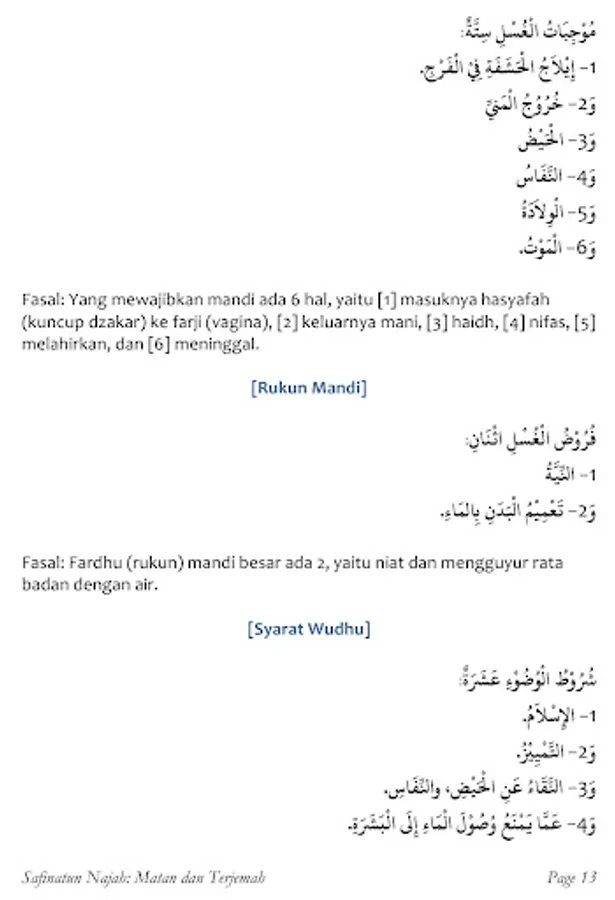 مُوْجِبَاتُ الْغُسْلِ سِتَّةٌ:
1- إِيْلَاجُ الْحَشَفَةِ فِيْ الْفَرْجِ.
وَ2- خُرُوْجُ الْمَنِيِّ
وَ3- الْحَيْضُ
وَ4- النِّفَاسُ
وَ5- الْوِلَادَةُ
وَ6- الْمَوْتُ.
Fasal: Yang mewajibkan mandi ada 6 hal, yaitu [1] masuknya hasyafah
(kuncup dzakar) ke farji (vagina), [2] keluarnya mani, [3] haidh, [4] nifas, [5]
melahirkan, dan [6] meninggal.
[Rukun Mandi]
فُرُوْضُ الْغُسْلِ اثْنَانِ:
1- النِّيَّةُ
وَ2- تَعْمِيْمُ الْبَدَنِ بِالمَاءِ.
Fasal: Fardhu (rukun) mandi besar ada 2, yaitu niat dan mengguyur rata
badan dengan air.
[Syarat Wudhu]
شُرُوْطُ الْوُضُوْءِ عَشَرَةٌ:
1- الإِسْلَامُ.
وَ2- التَّمْيِيْزُ.
وَ3- النَّقَاءُ عَنِ الْحَيْضِ، والنِّفَاسِ.
وَ4- عَمَّا يَمْنَعُ وُصُوْلَ الْمَاءِ إِلَى الْبَشَرَةِ.
Safinatun Najah: Matan dan Terjemah Page 13